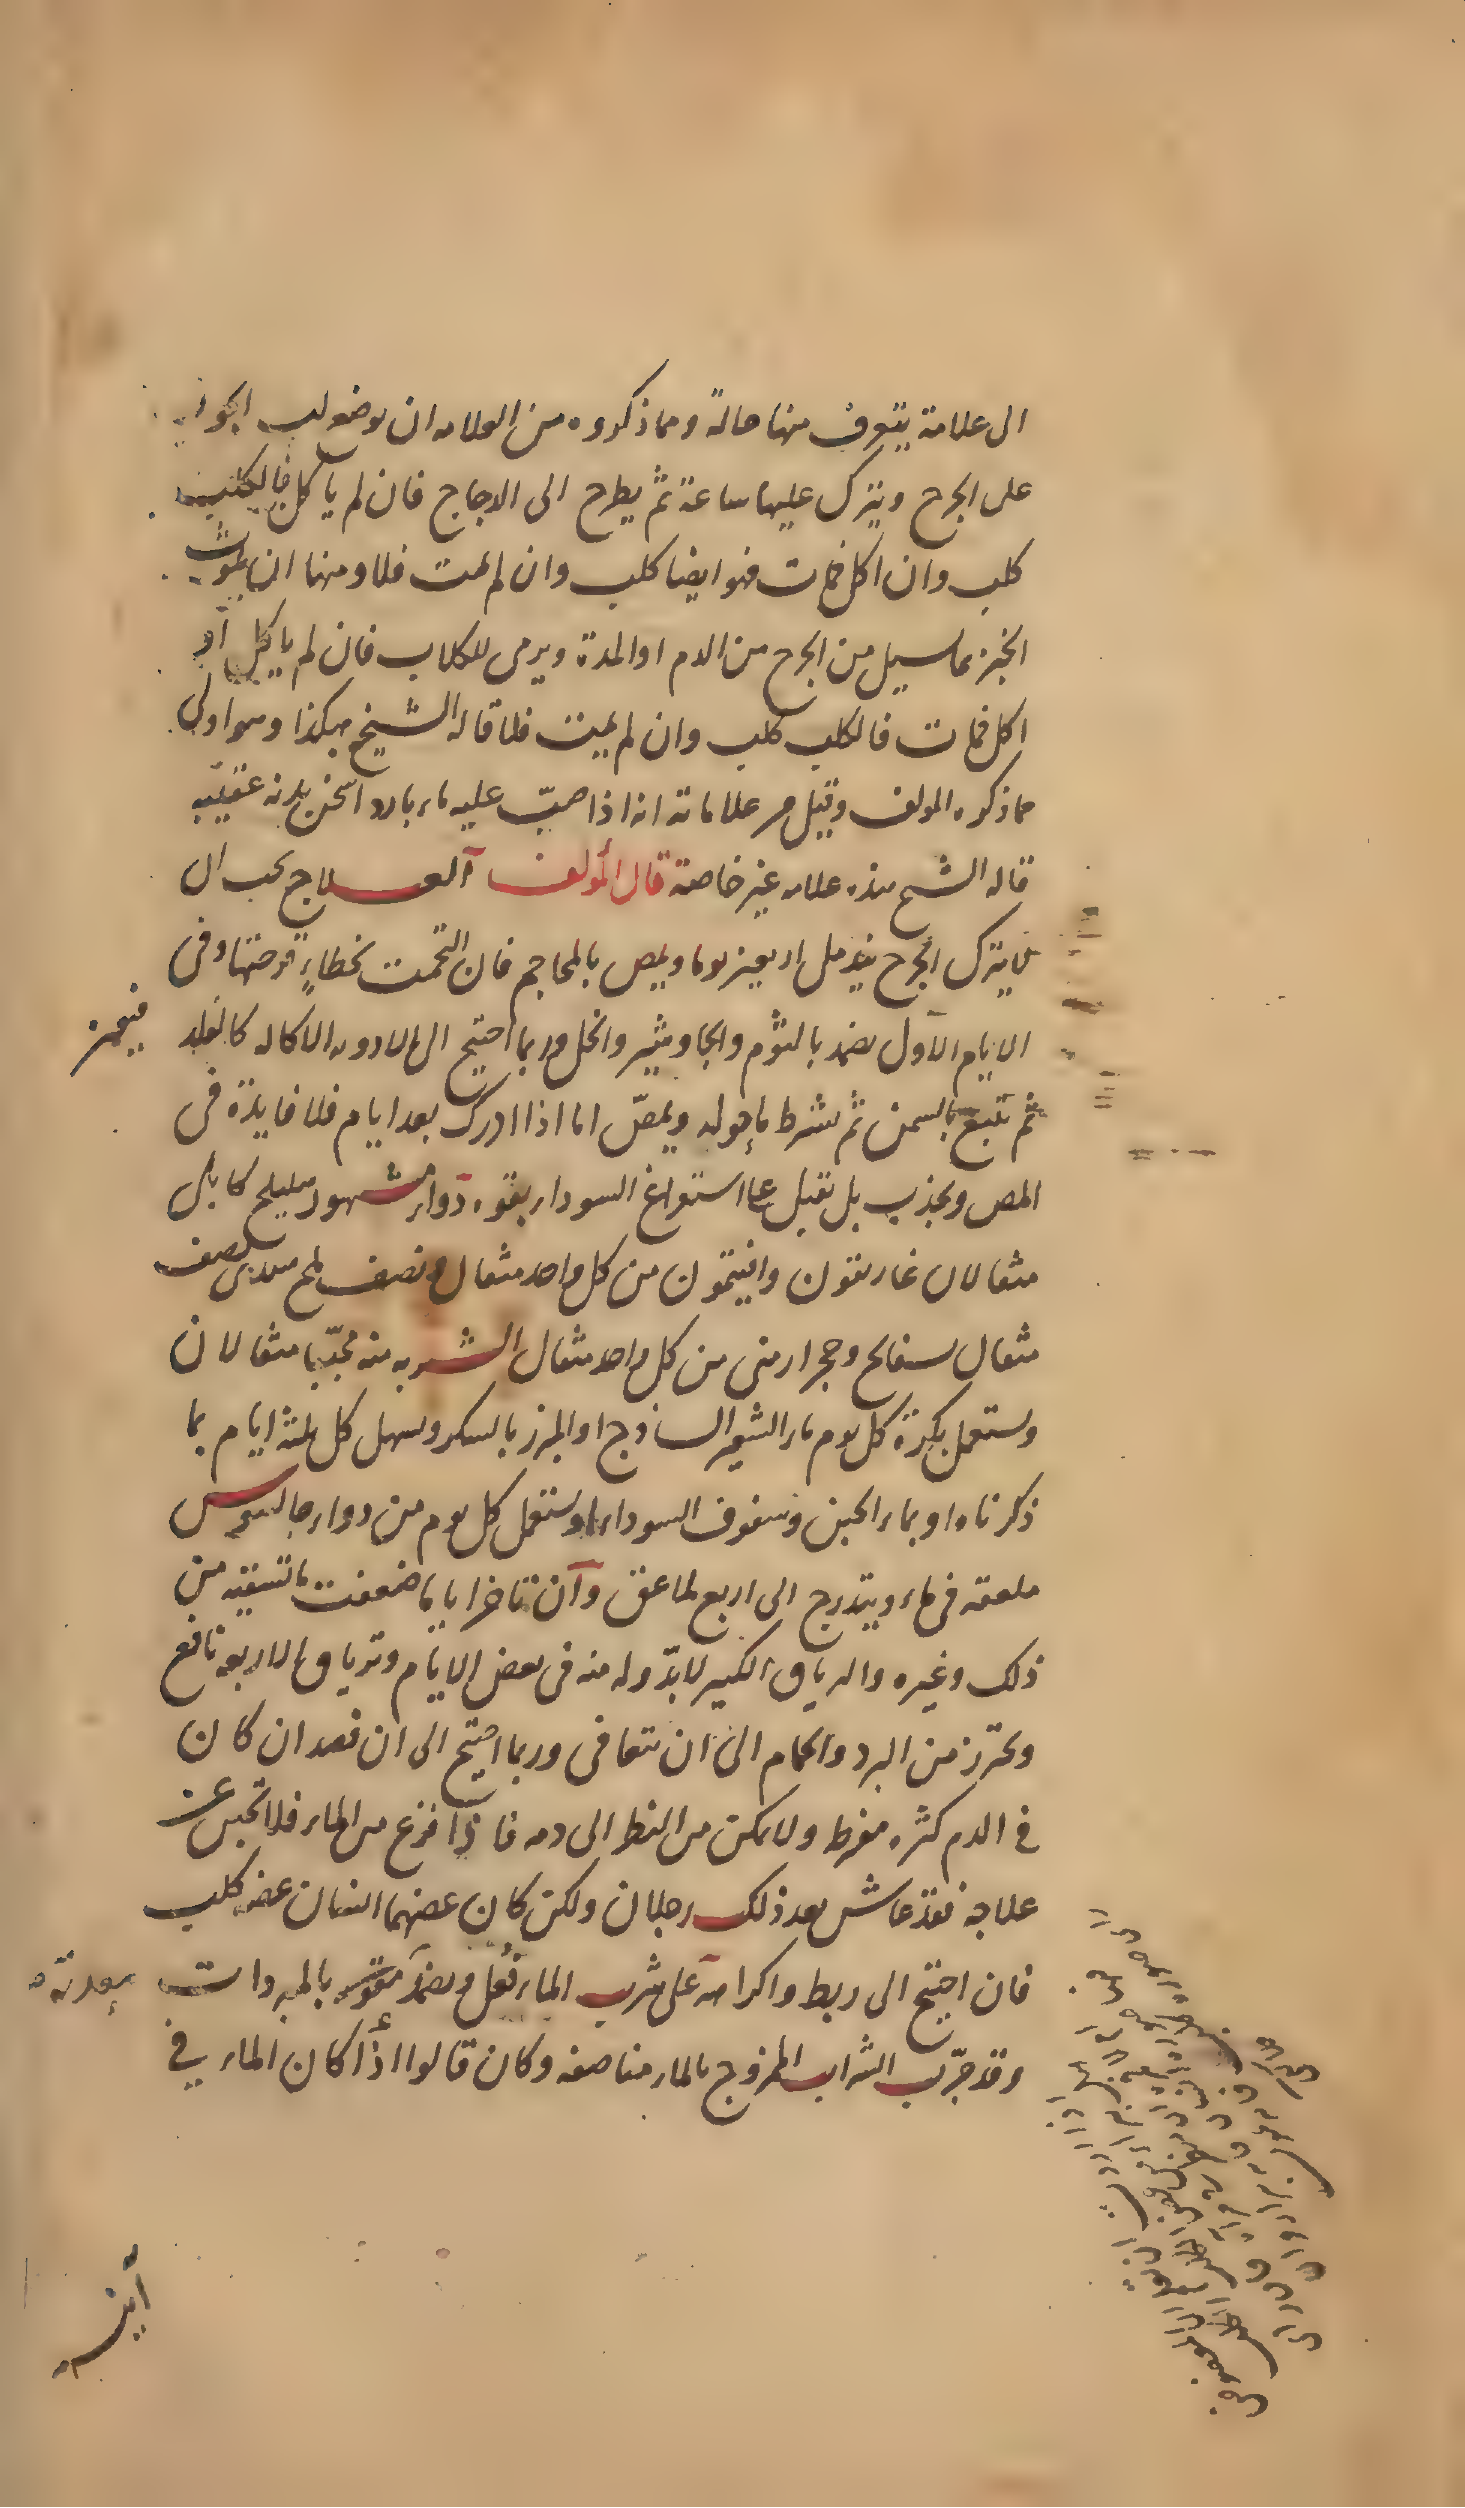 الى علامة يتعرف منها حاله ومما ذكروه من العلامه ان يوضع لب الجوز
على الجرح ويترك عليها ساعة ثم يطرح الى الدجاج فان لم ياكل فالكلب
كلب وان اكل فمات فهو ايضا كلب وان لم يمت فلا ومنها ان يلوث
الخبز بما يسيل من الجرح من الدم او المدة ويرمى للكلاب فان لم ياكل او
اكل فمات فالكلب كلب وان لم يمت فلا قاله الشيخ هكذا وهو اولى
مما ذكره المولف وقيل من علاماته انه اذا صبّ عليه ماء بارد اسخن بدنه عقيبه
قاله الشيخ هذه علامه غير خاصة قال المؤلف العلاج يجب ان
لا يترك الجرح يندمل اربعين يوما ويمص بالمحاجم فان التحمت بخطاءٍ قرحتها وفى
الايام الاول يضمد بالثوم والجاوشير والخل وربما احتيج الى الادويه الاكاله كالفلد
فيون
ثم تتبع بالسمن ثم يشرط ما حوله ويمصّ اما اذا ادرك بعد ايام فلا فايدة فى
المص ويجذب بل يقبل على استفراغ السوداء بقوه دواء مشهور هليلج كابلى
مثقالان غاريقون وافتيمون من كل واحد مثقال ونصف ملح هندى نصف
مثقال بسفايج وحجر ارمنى من كل واحد مثقال الشربه منه محبّبا مثقالان
ويستعمل بكرة كل يوم ماء الشعير الساذج او المبزر بالسكر ويسهل كل ثلثة ايام بما
ذكرناه او بماء الجبن وسفوف السوداء ويستعمل كل يوم من دواء جالينوس
ملعقه فى ماء ويتدرج الى اربع ملاعق وان تاخر اياما ضعفت ما تسقيه من
ذلك وغيره والترياق الكبير لا بدّ وله منه فى بعض الايام وترياق الاربعه نافع
ويحترز من البرد والحمام الى ان يتعافى وربما احتيج الى ان يفصد ان كان
فى الدم كثره مفرط ولا يمكن من النظر الى دمه فاذا فزع من الماء فلا تحبس عن
علاجه فقد عاش بعد ذلك رجلان ولكن كان عضهما انسان عضه كلب
فان احتيج الى ربط واكراه على شرب الماء فُعل ويضمد بالمبردات
معدته
وقد جرّب الشراب الممزوج بالماء مناصفه وكان قالوا اذا كان الماء في